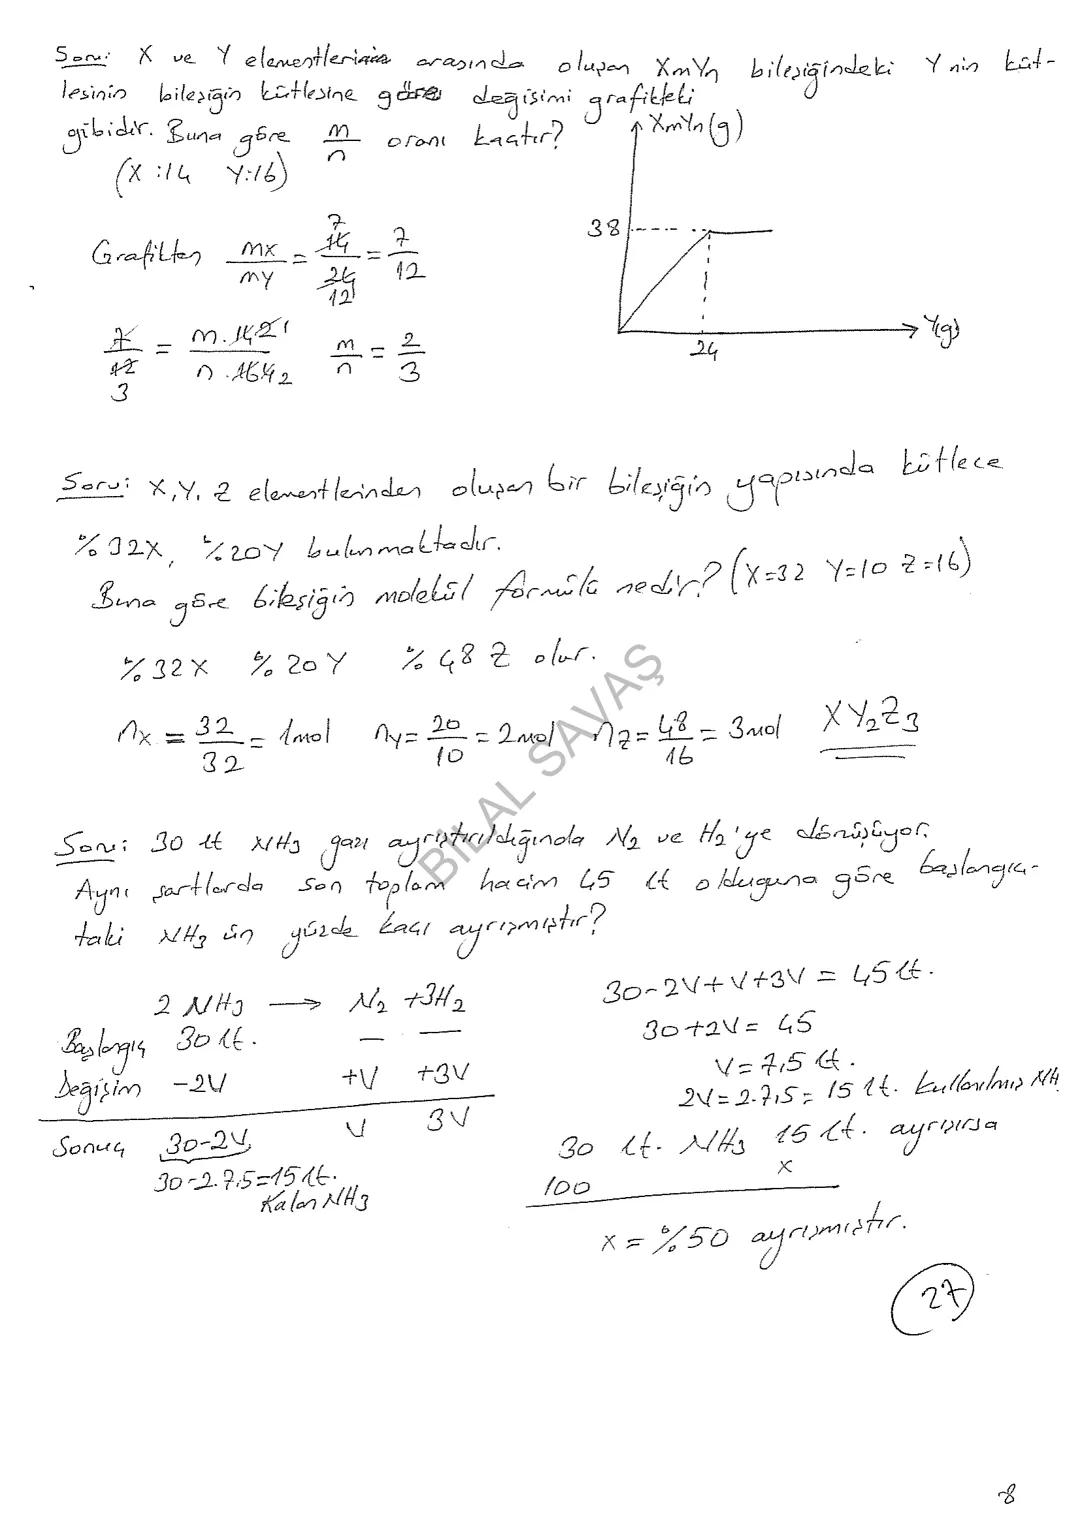 Soru: X ve Y elementlerinin arasında oluşan XmYn bileşiğindeki Y nin küt-
lesinin bileşiğin kütlesine göre değişimi grafikteki
gibidir. Buna göre m/n oranı kaçtır?
(X:14 Y:16)
XmYn(g)
38
24
Y(g)
Grafikten mx/my = 14/24 = 7/12
7
12
7/12 = m.14/n.16 m/n = 2/3
3
Soru: X, Y, Z elementlerinden oluşan bir bileşiğin yapısında kütlece
%32X, %20Y bulunmaktadır.
Buna göre bileşiğin molekül formülü nedir? (X=32 Y=10 Z=16)
%32X %20Y %48Z olur.
nx = 32/32 = 1mol ny = 20/10 = 2mol nz = 48/16 = 3mol XY₂Z₃
BİLAL SAVAŞ
Soru: 30 lt NH₃ gazı ayrıştırıldığında N₂ ve H₂'ye dönüşüyor.
Aynı şartlarda son toplam hacim 45 lt olduguna göre başlangıç-
taki NH₃ ün yüzde kaçı ayrışmıştır?
2 NH₃ → N₂ + 3H₂
Başlangıç 30 lt. — —
Değişim -2V +V +3V
Sonuç 30-2V V 3V
30-2.7,5=15 lt.
Kalan NH₃
30-2V+V+3V = 45 lt.
30+2V = 45
V = 7,5 lt.
2V = 2.7,5 = 15 lt. kullanılmış NH
30 lt. NH₃ 15 lt. ayrışırsa
100 x
x = %50 ayrışmıştır.
27
8